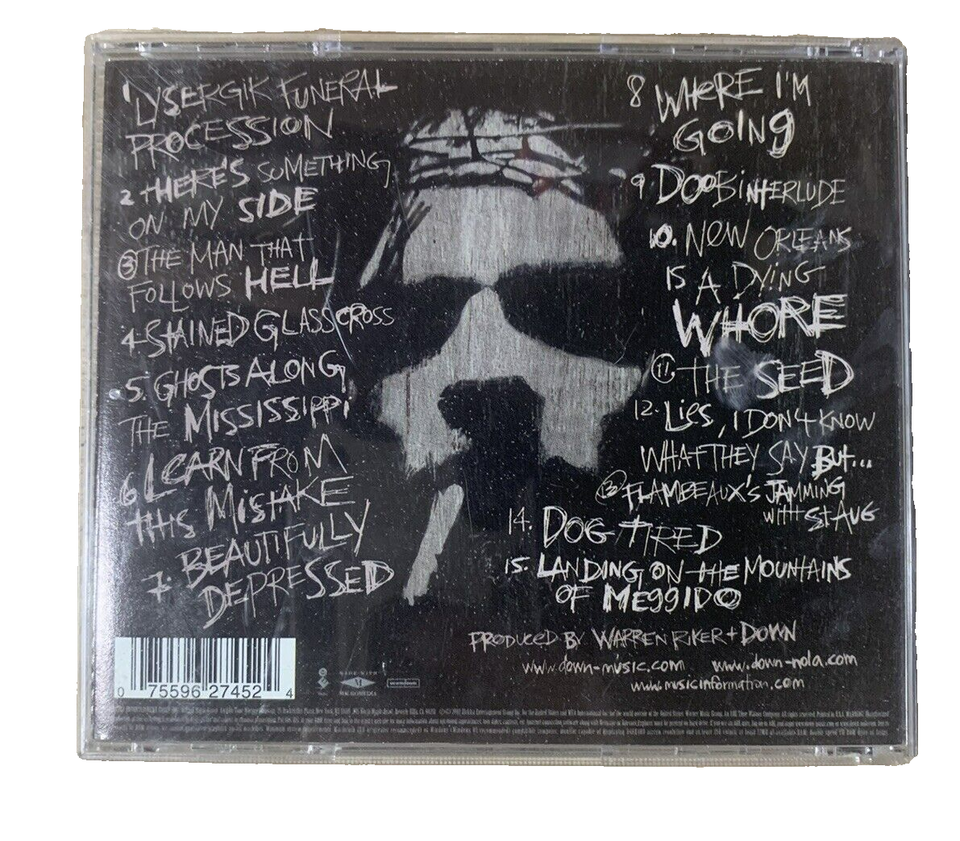 1 LYSERGIK FUNERAL
PROCESSION
2 THERE'S SOMETHING
ON MY SIDE
3 THE MAN THAT
FOLLOWS HELL
4 STAINED GLASS CROSS
5. GHOSTS ALONG
THE MISSISSIPPI
6 LEARN FROM
THIS MISTAKE
7. BEAUTIFULLY
DEPRESSED
8 WHERE I'M
GOING
9 DOOBINTERLUDE
10. NEW ORLEANS
IS A DYING
WHORE
11 THE SEED
12. LIES, I DON'T KNOW
WHAT THEY SAY BUT...
13 FLAMBEAUX'S JAMMING
WITH ST AUG
14. DOG TIRED
15. LANDING ON THE MOUNTAINS
OF MEGGIDO
PRODUCED BY WARREN RIKER + DOWN
www.down-music.com www.down-nola.com
www.musicinformation.com
0 75596 27452 4